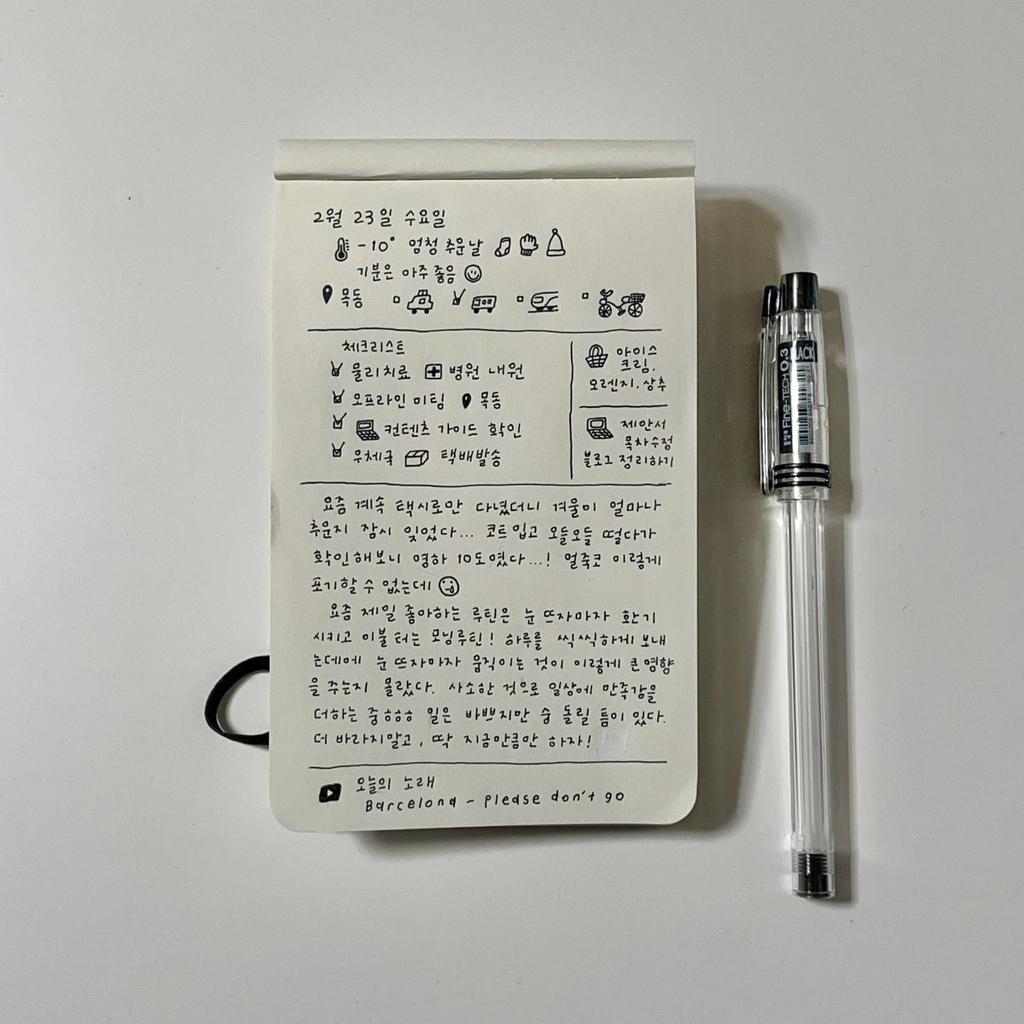 2월 23일 수요일
-10° 엄청 추운날
기분은 아주 좋음
목동
체크리스트
물리치료 병원 내원
오프라인 미팅 목동
컨텐츠 가이드 확인
우체국 택배발송
아이스
크림.
오렌지. 상추
제안서
목차수정
블로그 정리하기
요즘 계속 택시로만 다녔더니 겨울이 얼마나
추운지 잠시 잊었다... 코트입고 오들오들 떨다가
확인해보니 영하 10도였다...! 얼죽코 이렇게
포기할 수 없는데
요즘 제일 좋아하는 루틴은 눈 뜨자마자 환기
시키고 이불 터는 모닝루틴! 하루를 씩씩하게 보내
는데에 눈 뜨자마자 움직이는 것이 이렇게 큰 영향
을 주는지 몰랐다. 사소한 것으로 일상에 만족감을
더하는 중ㅎㅎㅎ 일은 바쁘지만 숨 돌릴 틈이 있다.
더 바라지말고, 딱 지금만큼만 하자!
오늘의 노래
Barcelona - please don't go
Fine-TECH 0.3
BLACK